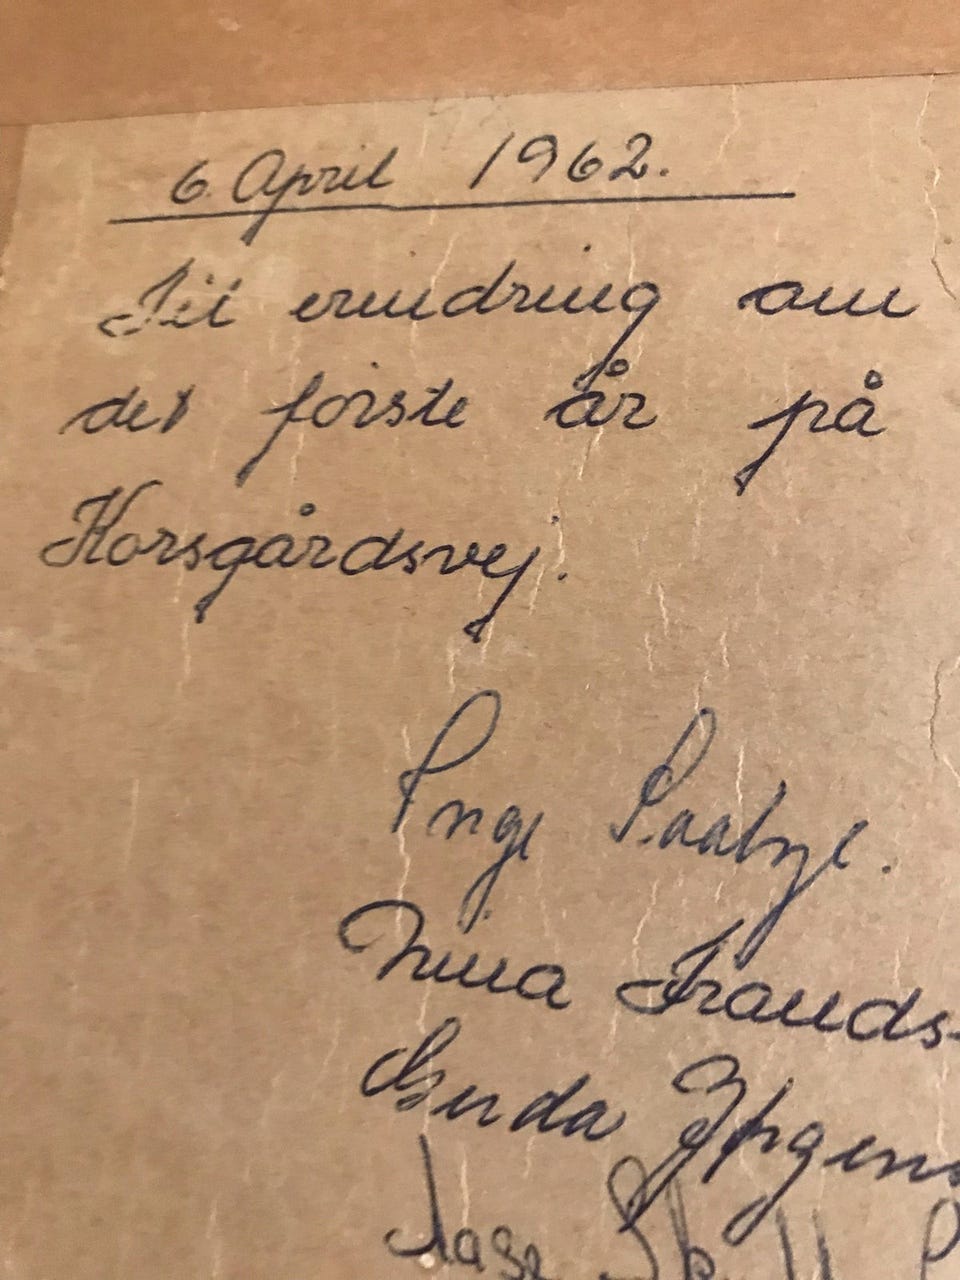 6. April 1962.
Til erindring om
det første år på
Korsgårdsvej.
Inge Paabye.
Nina Frands-
Gerda Jørgens
Aase